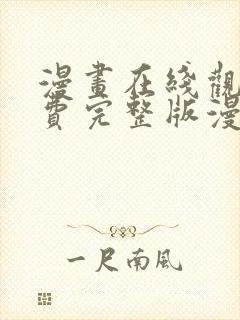 漫畫在綫觀
費完整版漫
一尺南風